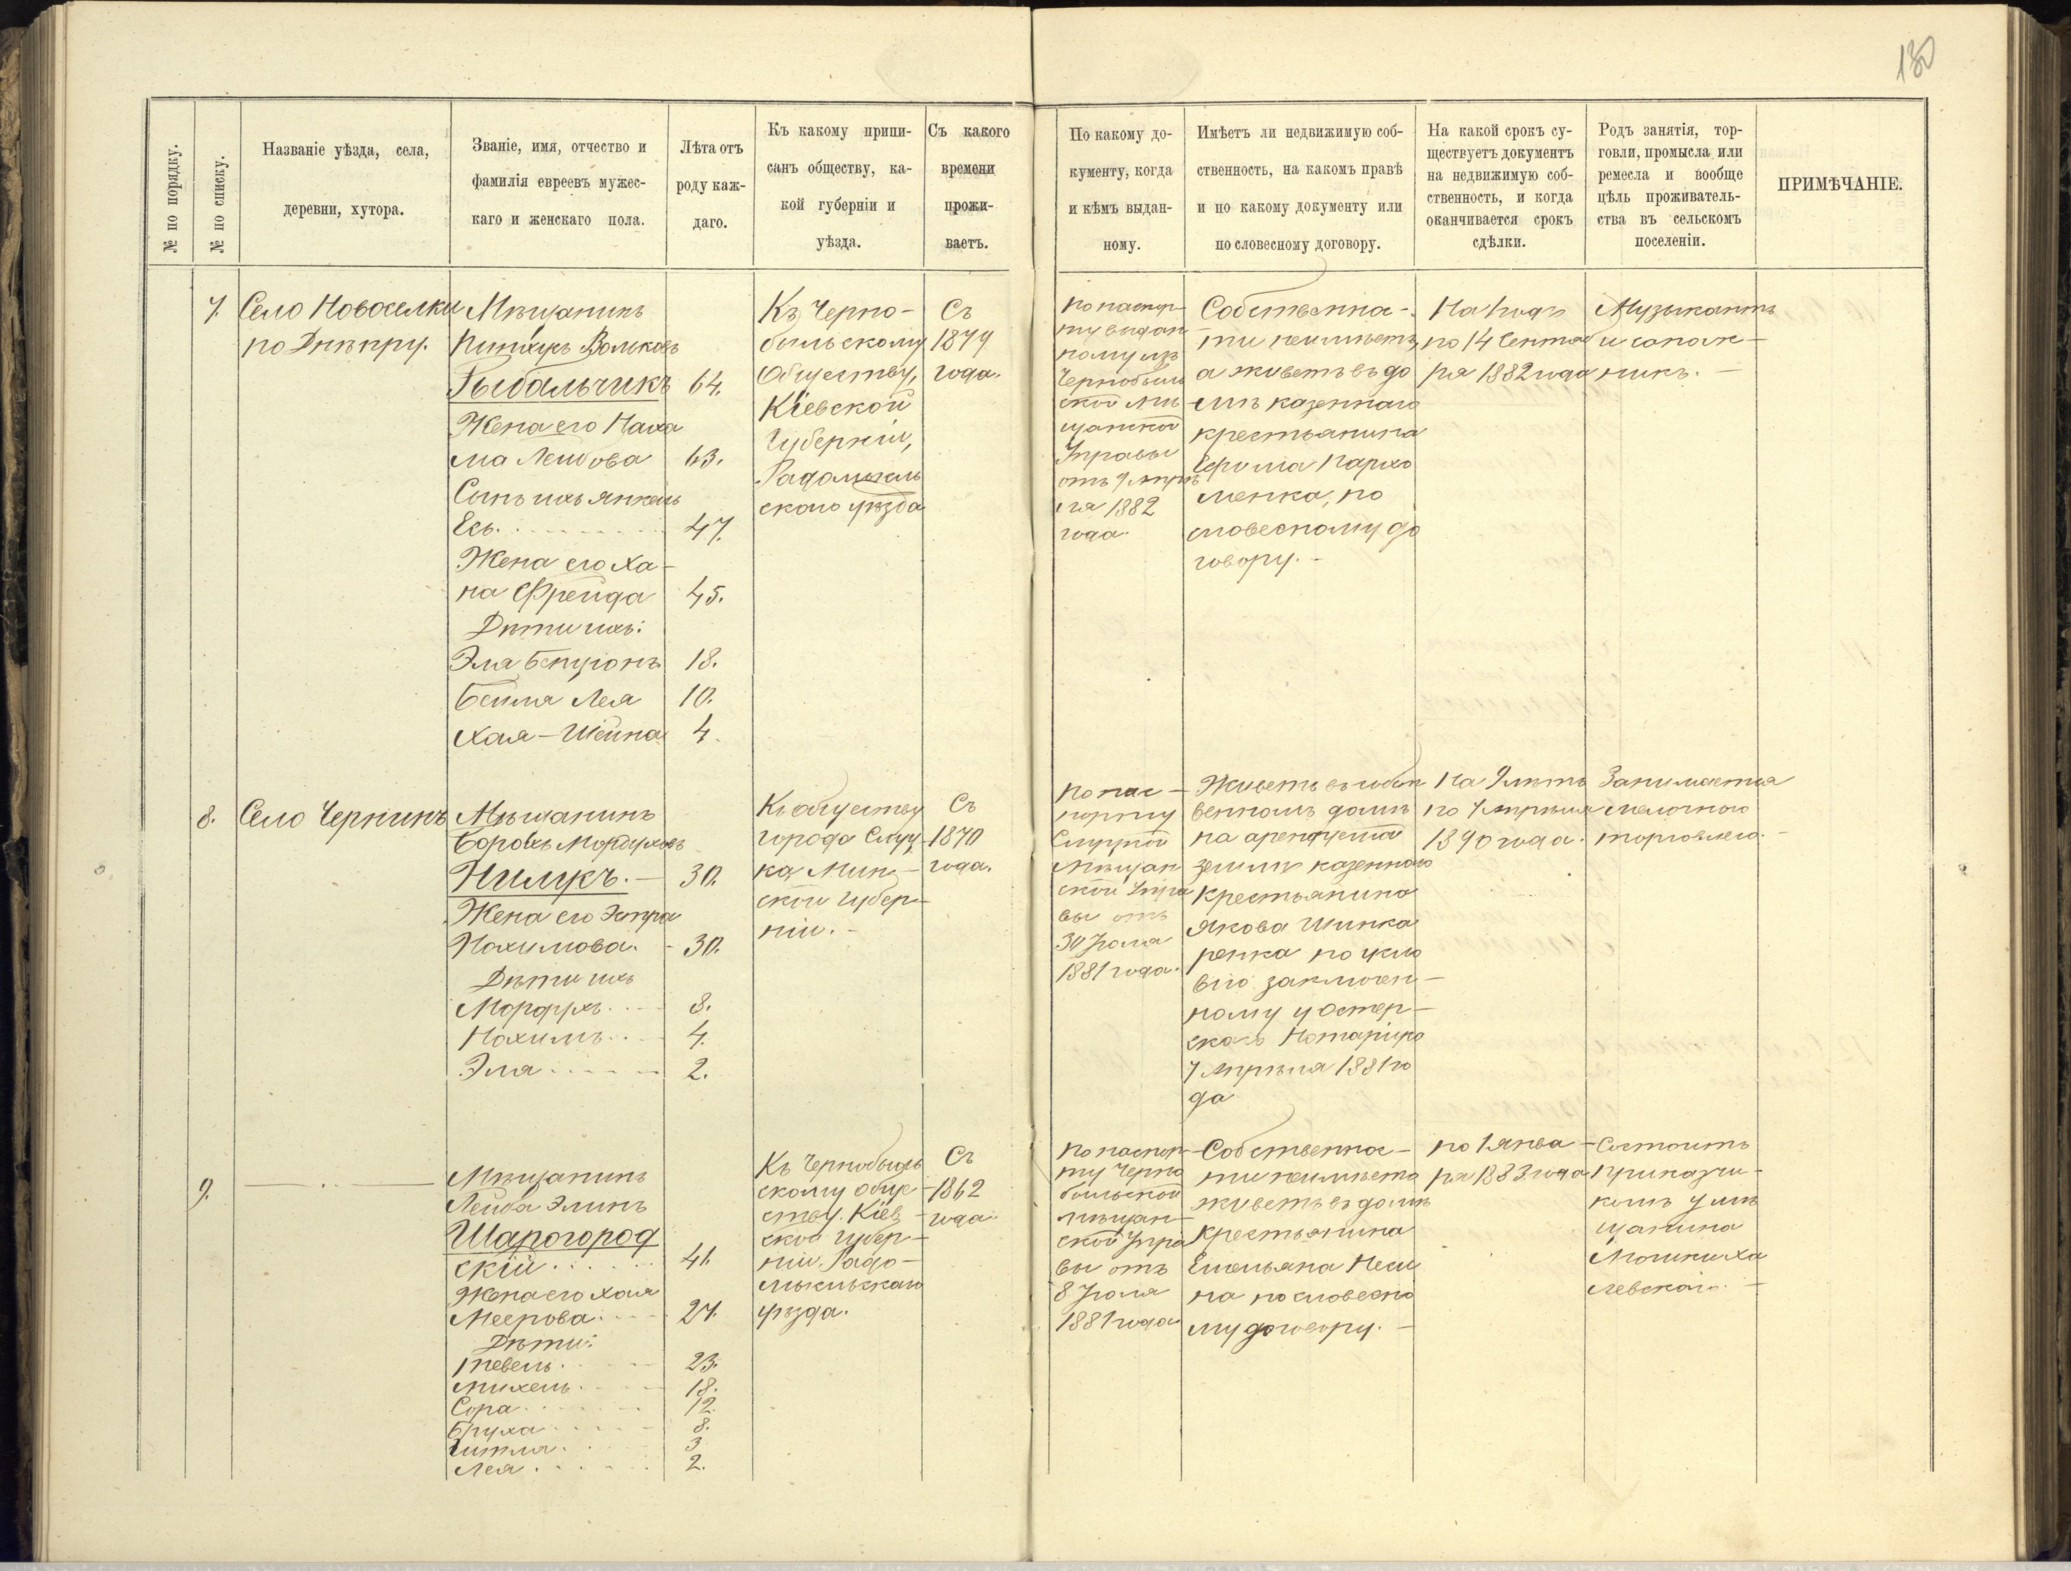 130
№ по порядку.
№ по списку.
Названіе уѣзда, села,
деревни, хутора.
Званіе, имя, отчество и
фамилія евреевъ мужес-
каго и женскаго пола.
Лѣта отъ
роду каж-
даго.
Къ какому припи-
санъ обществу, ка-
кой губерніи и
уѣзда.
Съ какого
времени
прожи-
ваетъ.
По какому до-
кументу, когда
и кѣмъ выдан-
ному.
Имѣетъ ли недвижимую соб-
ственность, на какомъ правѣ
и по какому документу или
по словесному договору.
На какой срокъ су-
ществуетъ документъ
на недвижимую соб-
ственность, и когда
оканчивается срокъ
сдѣлки.
Родъ занятія, тор-
говли, промысла или
ремесла и вообще
цѣль проживатель-
ства въ сельскомъ
поселеніи.
ПРИМѢЧАНІЕ.
7.
Село Новоселки
по Днѣпру.
Мѣщанинъ
Пинхусъ Вольковъ
Рыбальчикъ 64.
Жена его Наха
ма Лейбова 63.
Сынъ ихъ Янкель
Есь. 47.
Жена его Ха-
на Фрейда 45.
Дѣти ихъ:
Эля Бенціонъ 18.
Бейла Лея 10.
Хая-Шейна 4.
Къ Черно-
быльскому
Обществу,
Кіевской
Губерніи,
Радомысль
скаго уѣзда
Съ
1879
года.
По паспор-
ту выдан
ному изъ
Чернобыль
ской Мѣ-
щанской
Управы
отъ 9 Апрѣ
ля 1882
года.
Собственно-
сти неимѣетъ,
а живетъ въ до
мѣ казеннаго
крестьянина
Ефима Пархо
менка, по
словесному до
говору.
На годъ
по 14 Сентяб
ря 1882 года
Музыкантъ
и сапож-
никъ.
8.
Село Чернинъ
Мѣщанинъ
Борохъ Мордуховъ
Нилукъ. 30.
Жена его Эстра
Нохимова. 30.
Дѣти ихъ
Мордухъ 8.
Нохимъ 4.
Эля 2.
Къ обществу
города Слуц
ка Мин-
ской губер-
ніи.
Съ
1870
года.
По пас-
порту
Слуцкой
Мѣщан
ской Упра
вы отъ
30 Іюля
1881 года.
Живетъ въ собст
венномъ домѣ
на арендуемой
землѣ казеннаго
крестьянина
Якова Шинка
ренка по усло
вію заключен-
ному у Остер-
скаго Нотаріуса
7 Апрѣля 1881 го
да
На 9 лѣтъ
по 7 Апрѣля
1890 года.
Занимается
мелочною
торговлею.
9.
Мѣщанинъ
Лейба Элинъ
Шарогород
скій 41.
Жена его Хая
Меерова 27.
Дѣти:
Тевель 23.
Михель 18.
Сора 12.
Бруха 8.
Гитля 3
Лея 2.
Къ Чернобыль
скому обще
ству. Кіев
ской губер-
ніи Радо-
мысльскаго
уѣзда.
Съ
1862
года
По паспор-
ту Черно
быльской
мѣщан-
ской Упра
вы отъ
8 Іюля
1881 года
Собственно-
сти неимѣетъ
живетъ въ домѣ
крестьянина
Емельяна
на по словесно
му договору.
по 1 Янва-
ря 1883 года
Состоитъ
Приказчи-
комъ у мѣ
щанина
Мошки Ха
левскаго.